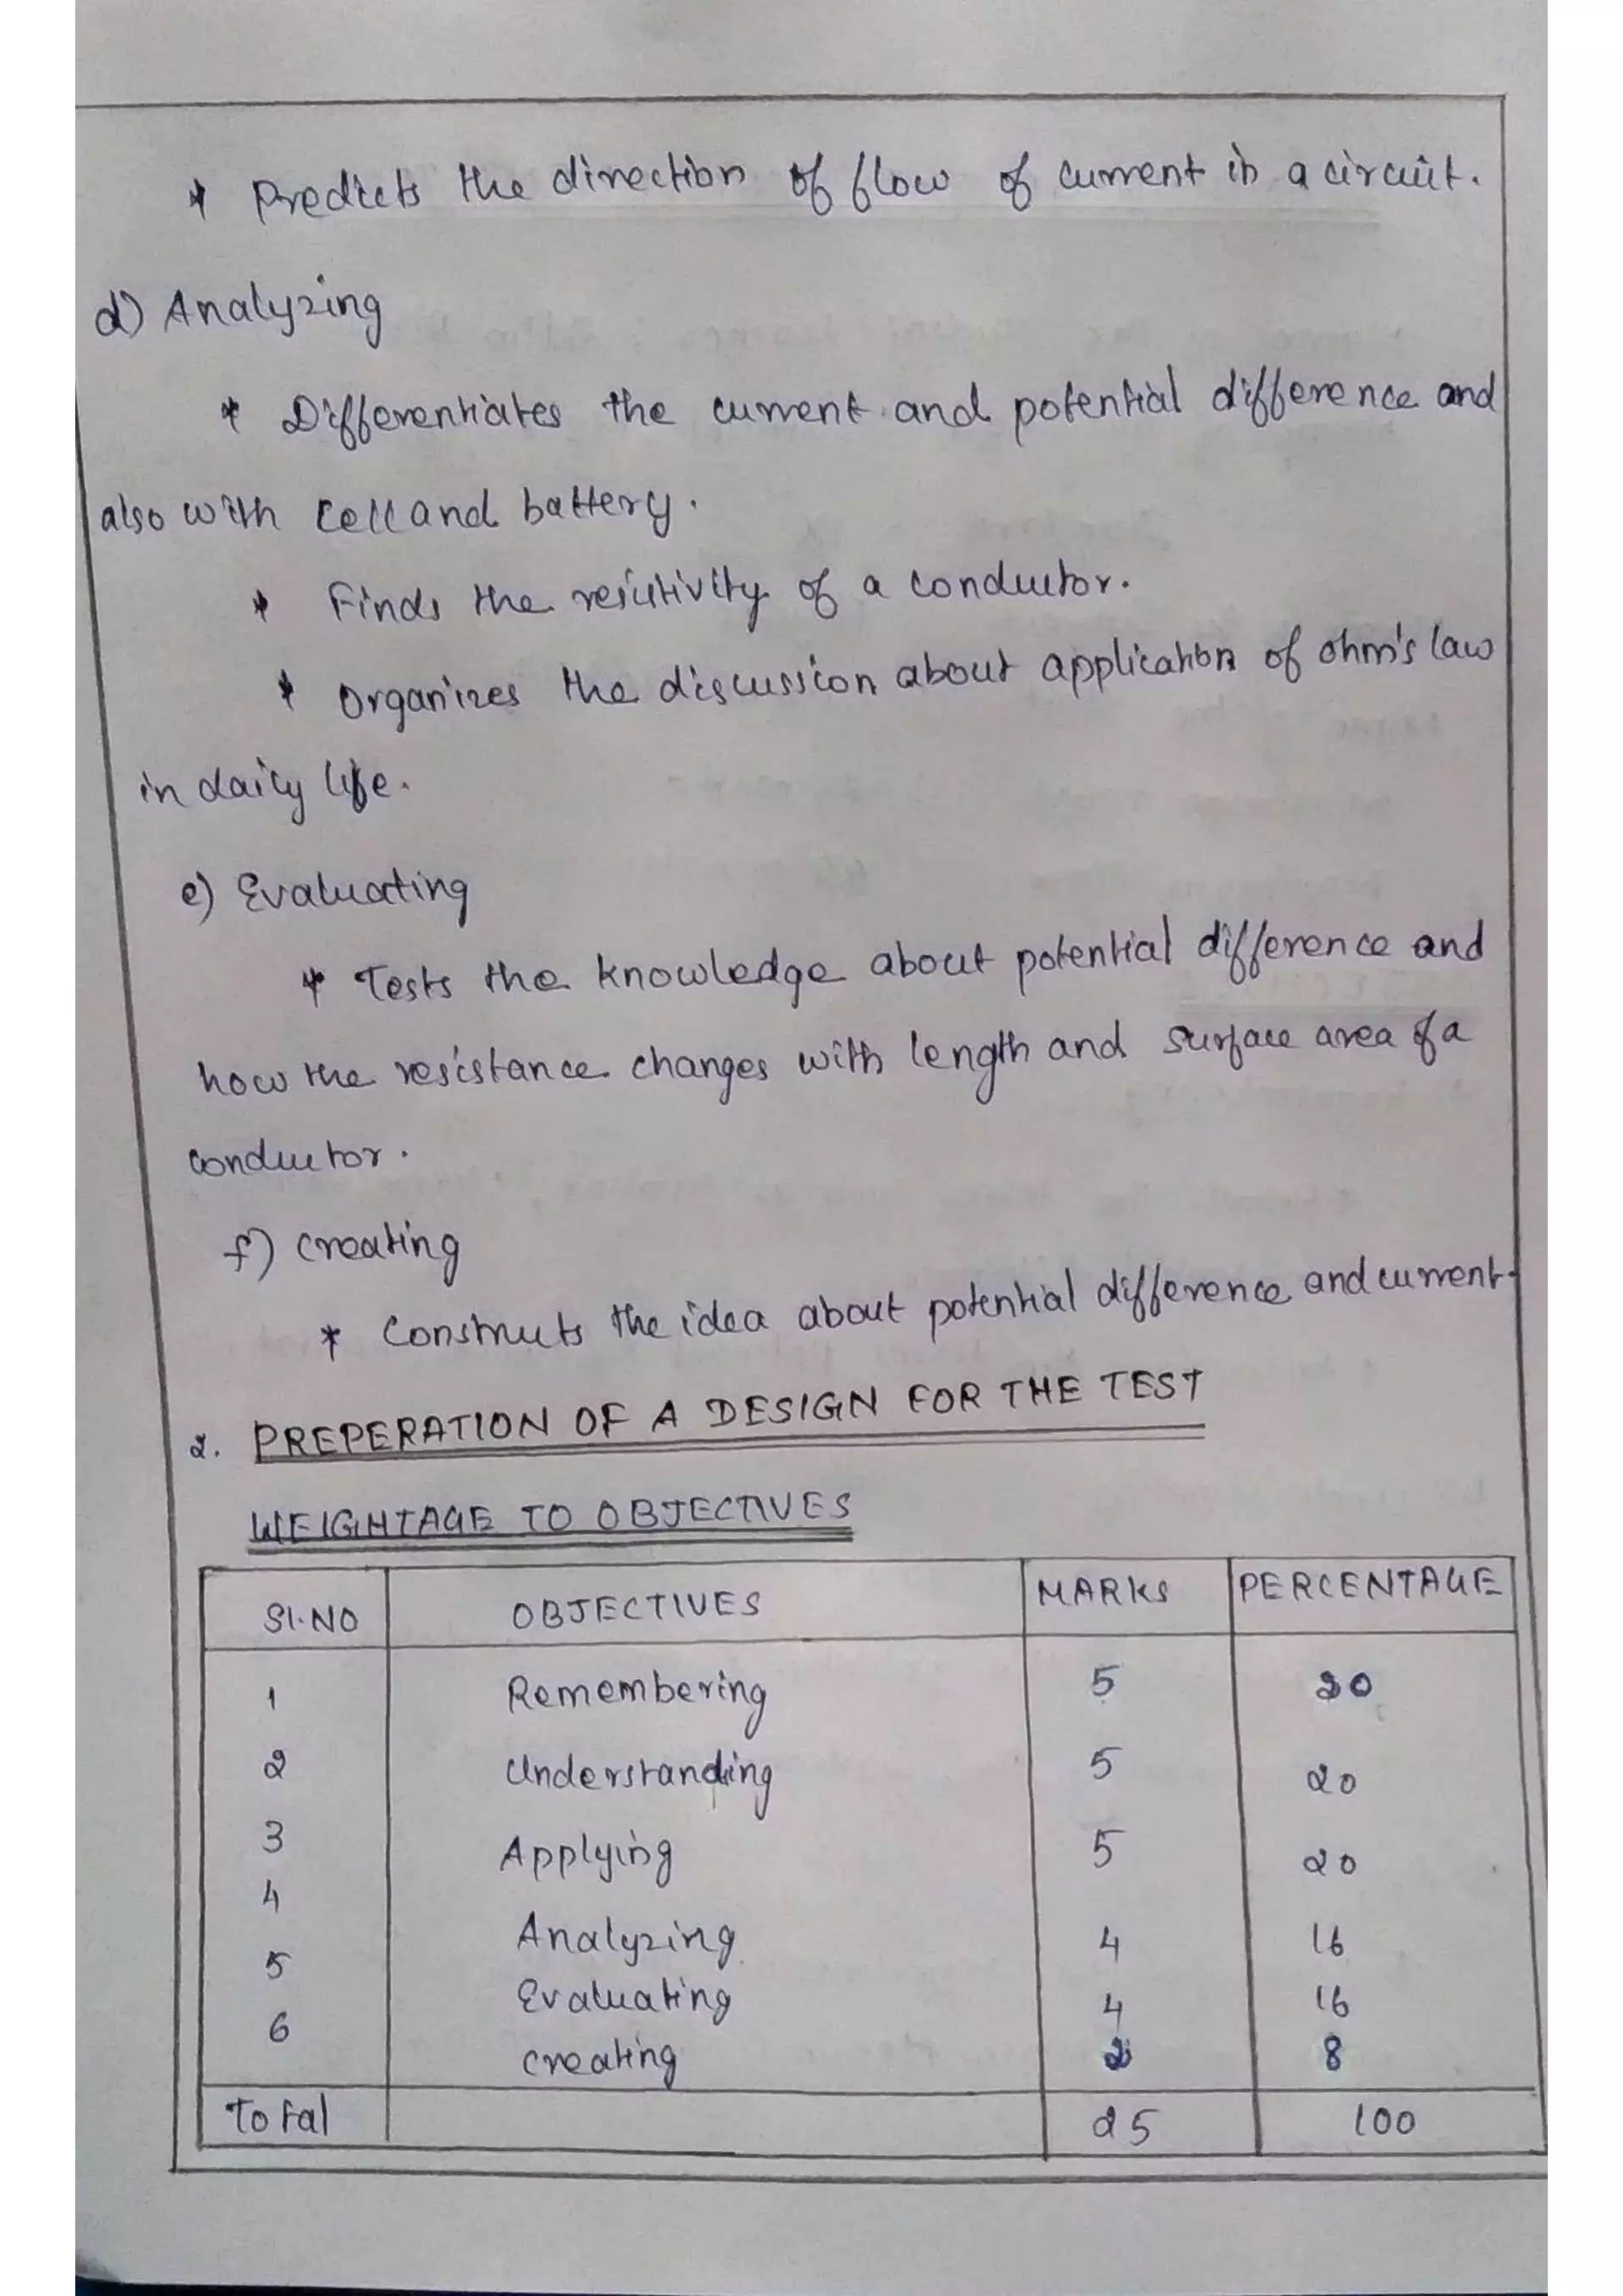 * Predicts the direction of flow of current in a circuit.
d) Analyzing
* Differentiates the current and potential difference and
also with cell and battery.
* Finds the resistivity of a conductor.
* Organizes the discussion about application of ohm's law
in daily life.
e) Evaluating
* Tests the knowledge about potential difference and
how the resistance changes with length and surface area of a
conductor.
f) Creating
* Constructs the idea about potential difference and current.
2. PREPERATION OF A DESIGN FOR THE TEST
WEIGHTAGE TO OBJECTIVES
Sl.NO OBJECTIVES MARKS PERCENTAGE
1 Remembering 5 20
2 Understanding 5 20
3 Applying 5 20
4 Analyzing 4 16
5 Evaluating 4 16
6 Creating 2 8
Total 25 100